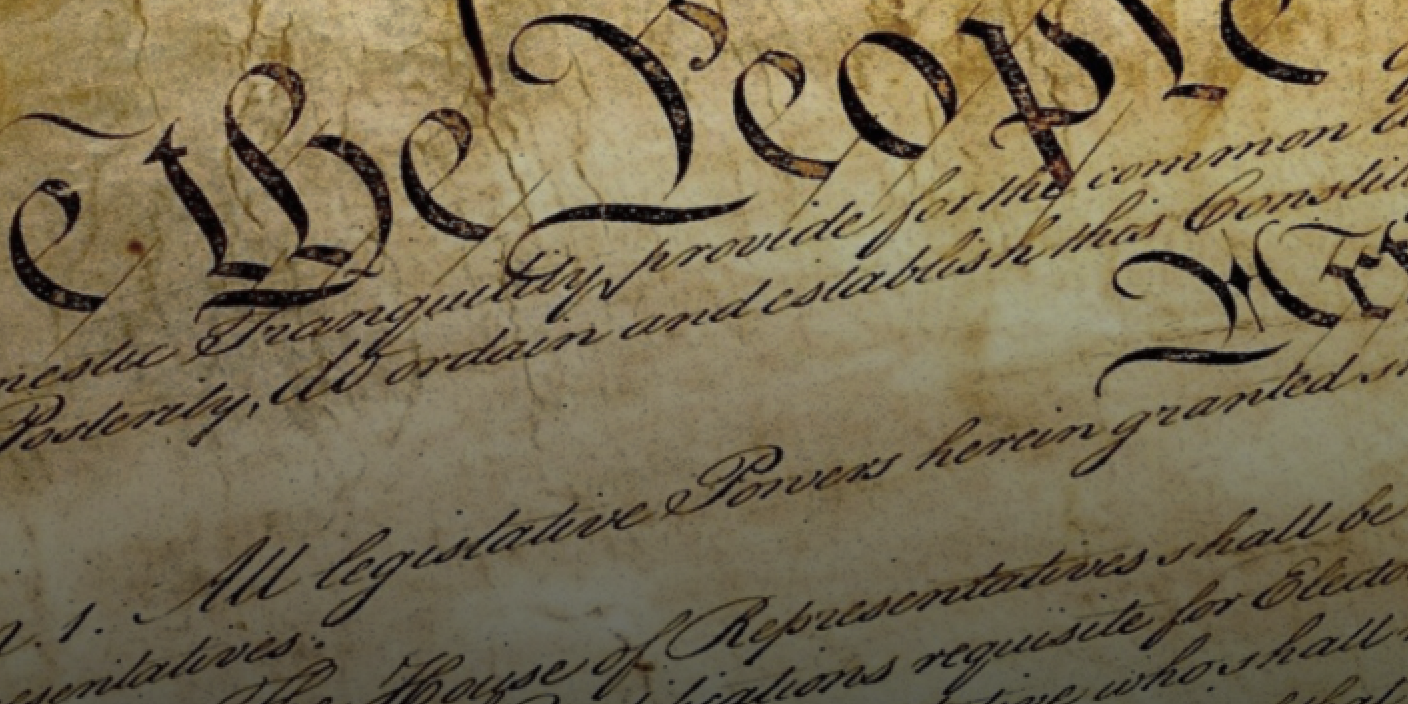 the People
mestic Tranquility, provide for the common
Posterity, do ordain and establish this
All legislative Powers herein granted
1.
House of Representatives shall be
requisite for
who shall